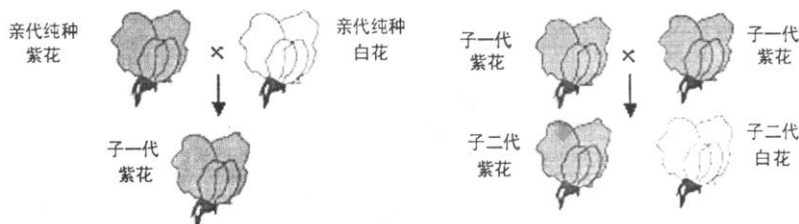 亲代纯种
紫花
×
亲代纯种
白花
子一代
紫花
子一代
紫花
×
子一代
紫花
子二代
紫花
子二代
白花